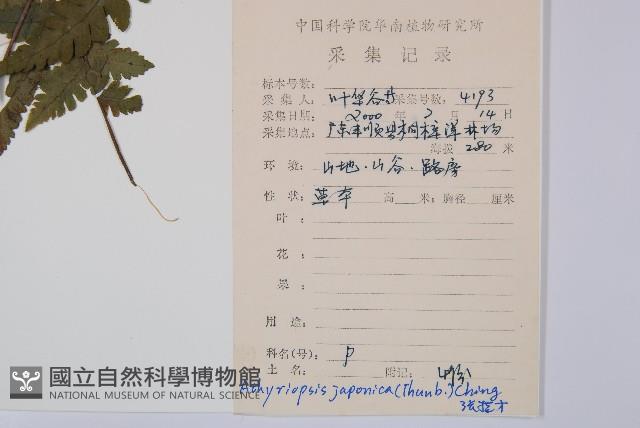 中国科学院华南植物研究所
采集记录
标本号数:
采集人: 叶华谷等 采集号数: 4193
采集日期: 2000年 7月 14日
采集地点: 广东丰顺县桐梓洋林场
海拔 280 米
环境: 山地·山谷·路旁
性状: 草本 高 米; 胸径 厘米
叶:
花:
果:
用途:
科名(号): P
土名: 附记:
國立自然科學博物館
NATIONAL MUSEUM OF NATURAL SCIENCE
Athyriopsis japonica (Thunb.) Ching